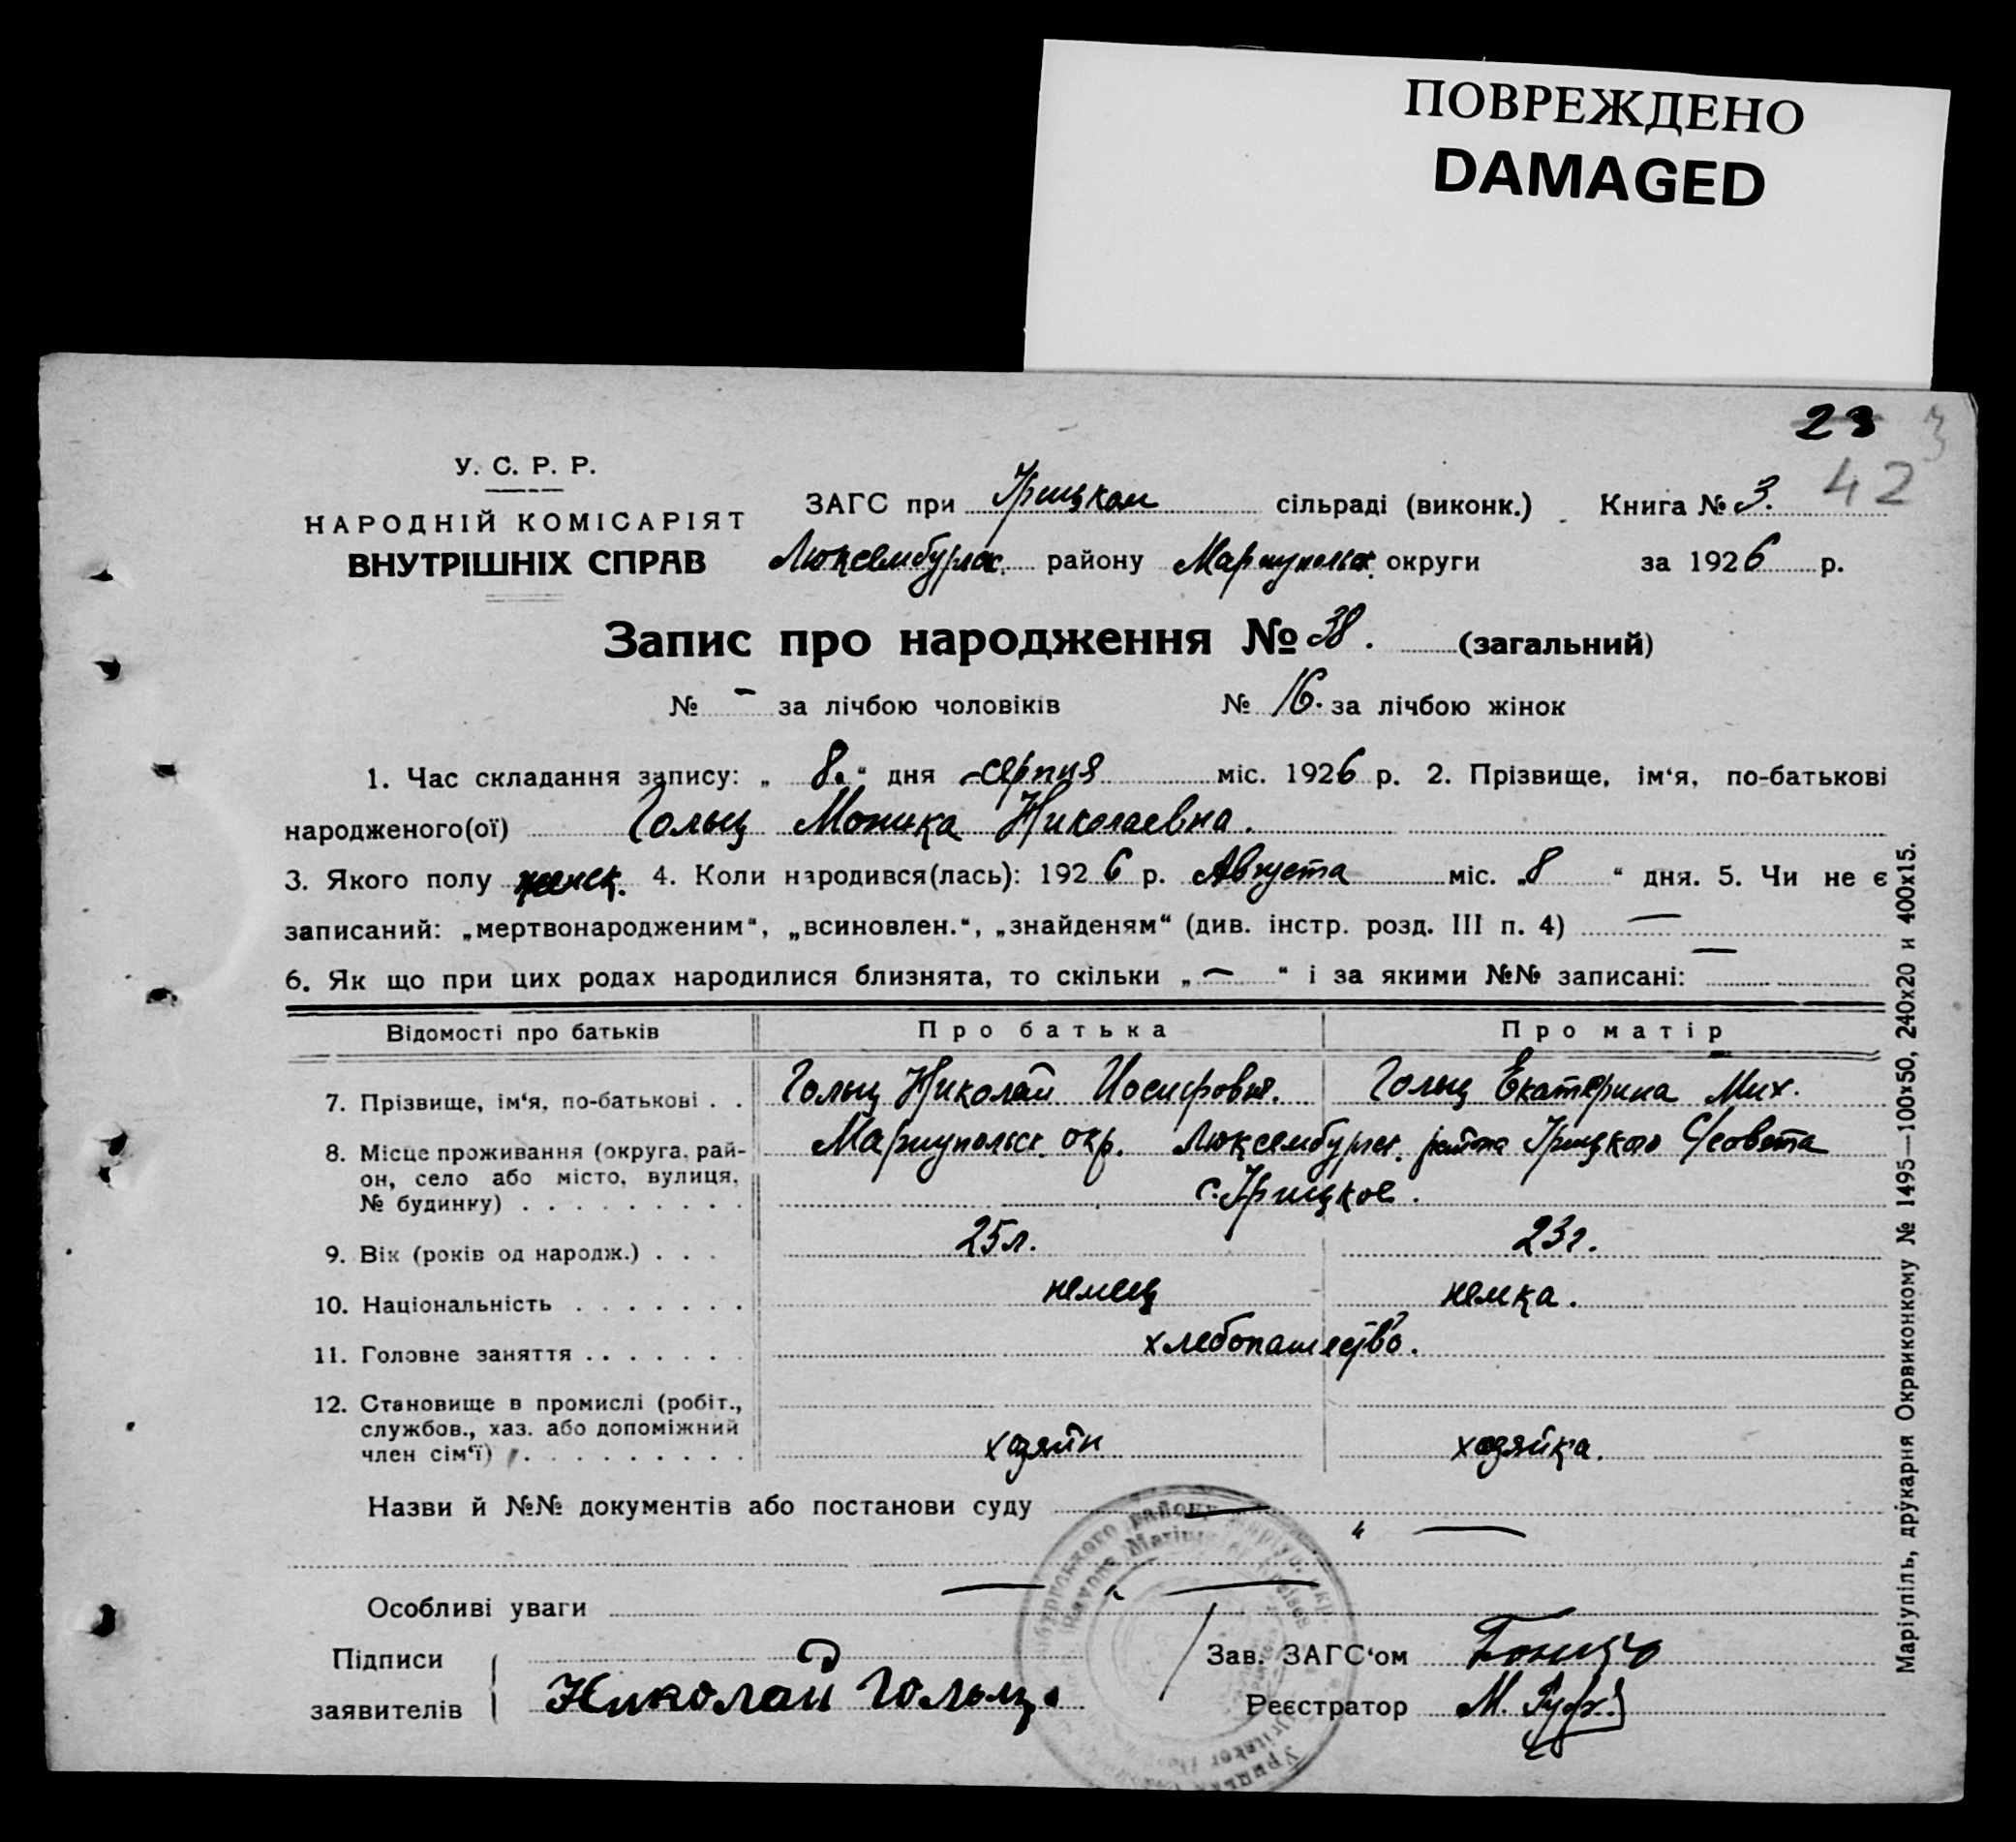 ПОВРЕЖДЕНО
DAMAGED
23 3
42
У. С. Р. Р.
НАРОДНІЙ КОМІСАРІЯТ
ВНУТРІШНІХ СПРАВ
ЗАГС при Урицком сільраді (виконк.) Книга № 3.
Люксембургск. району Мариупольск. округи за 1926 р.
Запис про народження № 38. (загальний)
№ - за лічбою чоловіків № 16. за лічбою жінок
1. Час складання запису: „ 8. “ дня серпня міс. 1926 р. 2. Прізвище, ім‘я, по-батькові
народженого(ої) Гольц Моника Николаевна.
3. Якого полу женск. 4. Коли народився(лась): 1926 р. Августа міс. „8 “ дня. 5. Чи не є
записаний: „мертвонародженим“, „всиновлен.“, „знайденям“ (див. інстр. розд. III п. 4) —
6. Як що при цих родах народилися близнята, то скільки „ — “ і за якими №№ записані: —
Відомості про батьків Про батька Про матір
7. Прізвище, ім‘я, по-батькові . . Гольц Николай Иосифович. Гольц Екатерина Мих.
8. Місце проживання (округа, рай- Мариупольск. окр. Люксембургск. района Урицкого С/совета
он, село або місто, вулиця, с. Урицкое.
№ будинку) . . . . . . . . .
9. Вік (років од народж.) . . . 25 л. 23 г.
10. Національність . . . . . . . немец немка.
11. Головне заняття . . . . . . . хлебопашество.
12. Становище в промислі (робіт.,
службов., хаз. або допоміжний
член сім‘ї) . . . . . . . . . хозяин хозяйка.
Назви й №№ документів або постанови суду — „ —
Особливі уваги — „ —
Підписи
заявителів Николай Гольц.
Зав. ЗАГС‘ом
Реєстратор М.
Маріупіль, друкарня Окрвиконкому № 1495—100х50, 240х20 и 400х15.